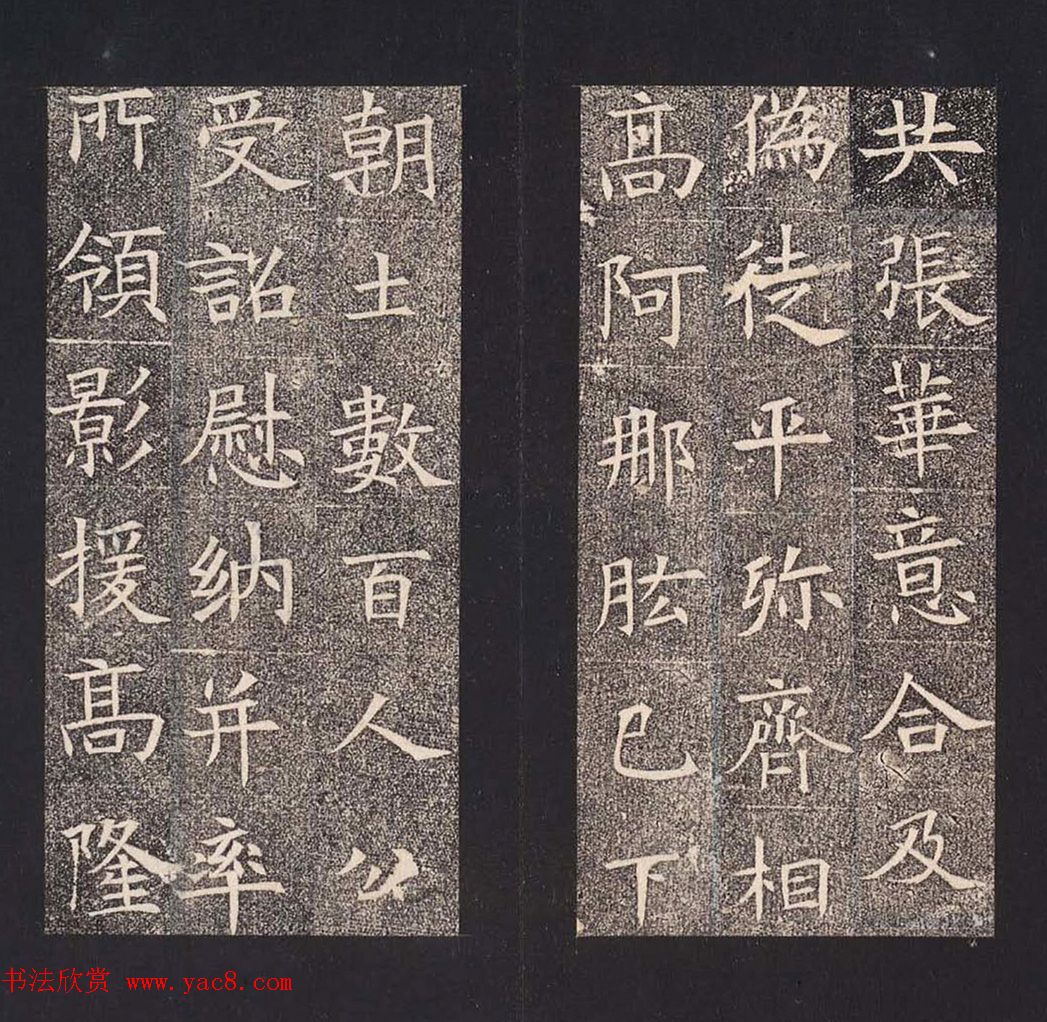 共張華意合及
偽徒平殄齊相
髙阿那肱已下
朝士數百人公
受詔慰納并率
所領影援髙隆
书法欣赏 www.yac8.com